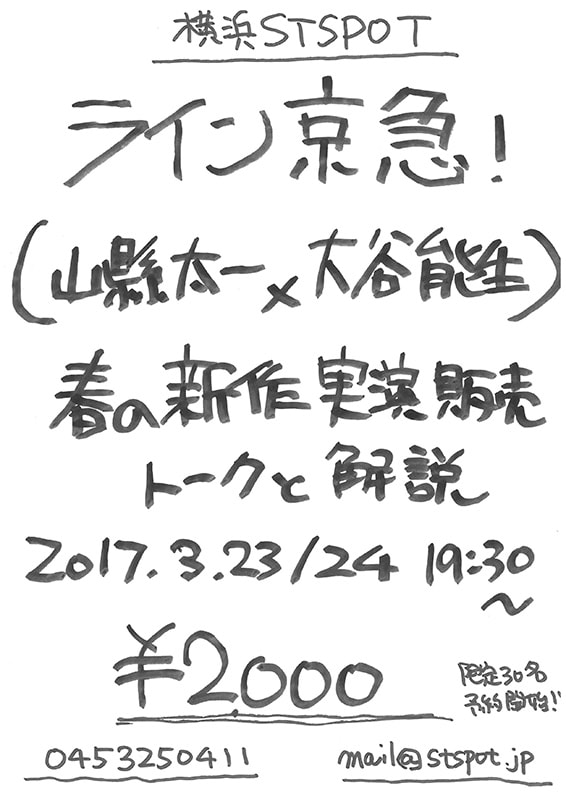 横浜STSPOT
ライン京急!
(山縣太一×大谷能生)
春の新作実演販売
トークと解説
2017.3.23/24 19:30
~
¥2000
限定30名
予約開始!!
0453250411
mail@stspot.jp